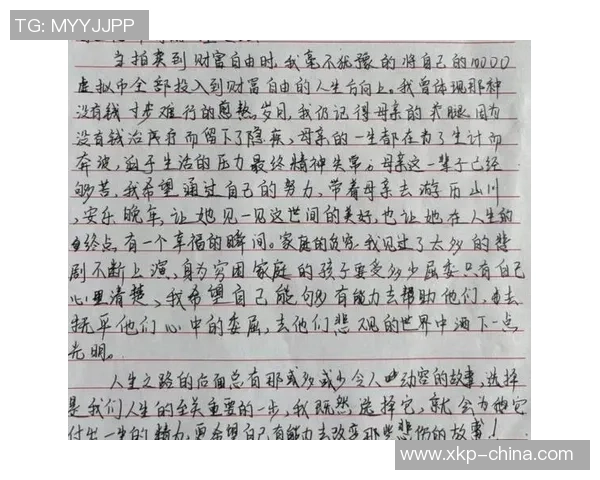 TG: MYYJJPP
当拍卖到财富自由时,我毫不犹豫的将自己的10000
虚拟币全部投入到财富自由的人生方向上。我曾体现那种
没有钱寸步难行的煎熬岁月,我仍记得母亲的 腿因为
没有钱治疗而留下了隐疾、母亲的一生都在为了生计而
奔波,迫于生活的压力最终精神失常。母亲这一辈子已经
够苦,我希望通过自己的努力,带着母亲去游历山川
,安乐晚年,让她见一见这世间的美好,也让她在人生的
终点有一个幸福的瞬间。家庭的贫穷,我见过了太多的悲
剧不断上演、身为穷困家庭的孩子要受多少屈委只有自己
心里清楚、我希望自己能够有能力去帮助他们,去
抚平他们心中的委屈,去他们悲观的世界中洒下一点
光明。
人生之路的后面总有那或多或少令人动容的故事,选择
是我们人生的至关重要的一步,我既然选择它,就会为他穷
付出一生的精力,更希望自己有能力去改变那些悲伤的故事!
www.xkp-china.com